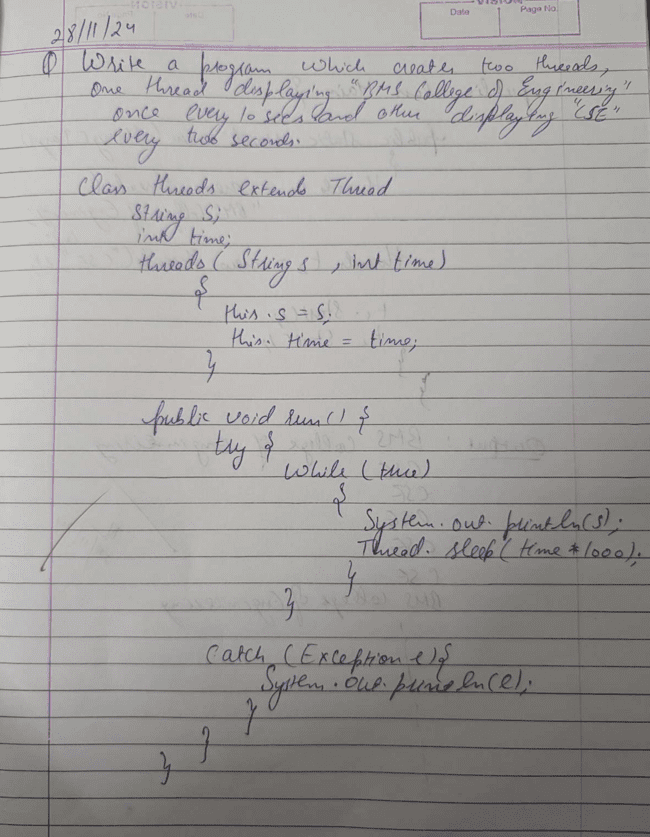 VISION
Date
Page No.
28/11/24
Q Write a program which creates two threads,
one thread displaying "BMS College of Engineering"
once every 10 secs and other displaying "CSE"
every two seconds.
Class threads extends Thread
String s;
int time;
threads ( String s , int time)
{
this . s = s;
this. time = time;
}
public void run() {
try {
while (true)
{
System. out. println(s);
Thread. sleep( time * 1000);
}
}
catch (Exception e){
System. out. println(e);
}
}
}